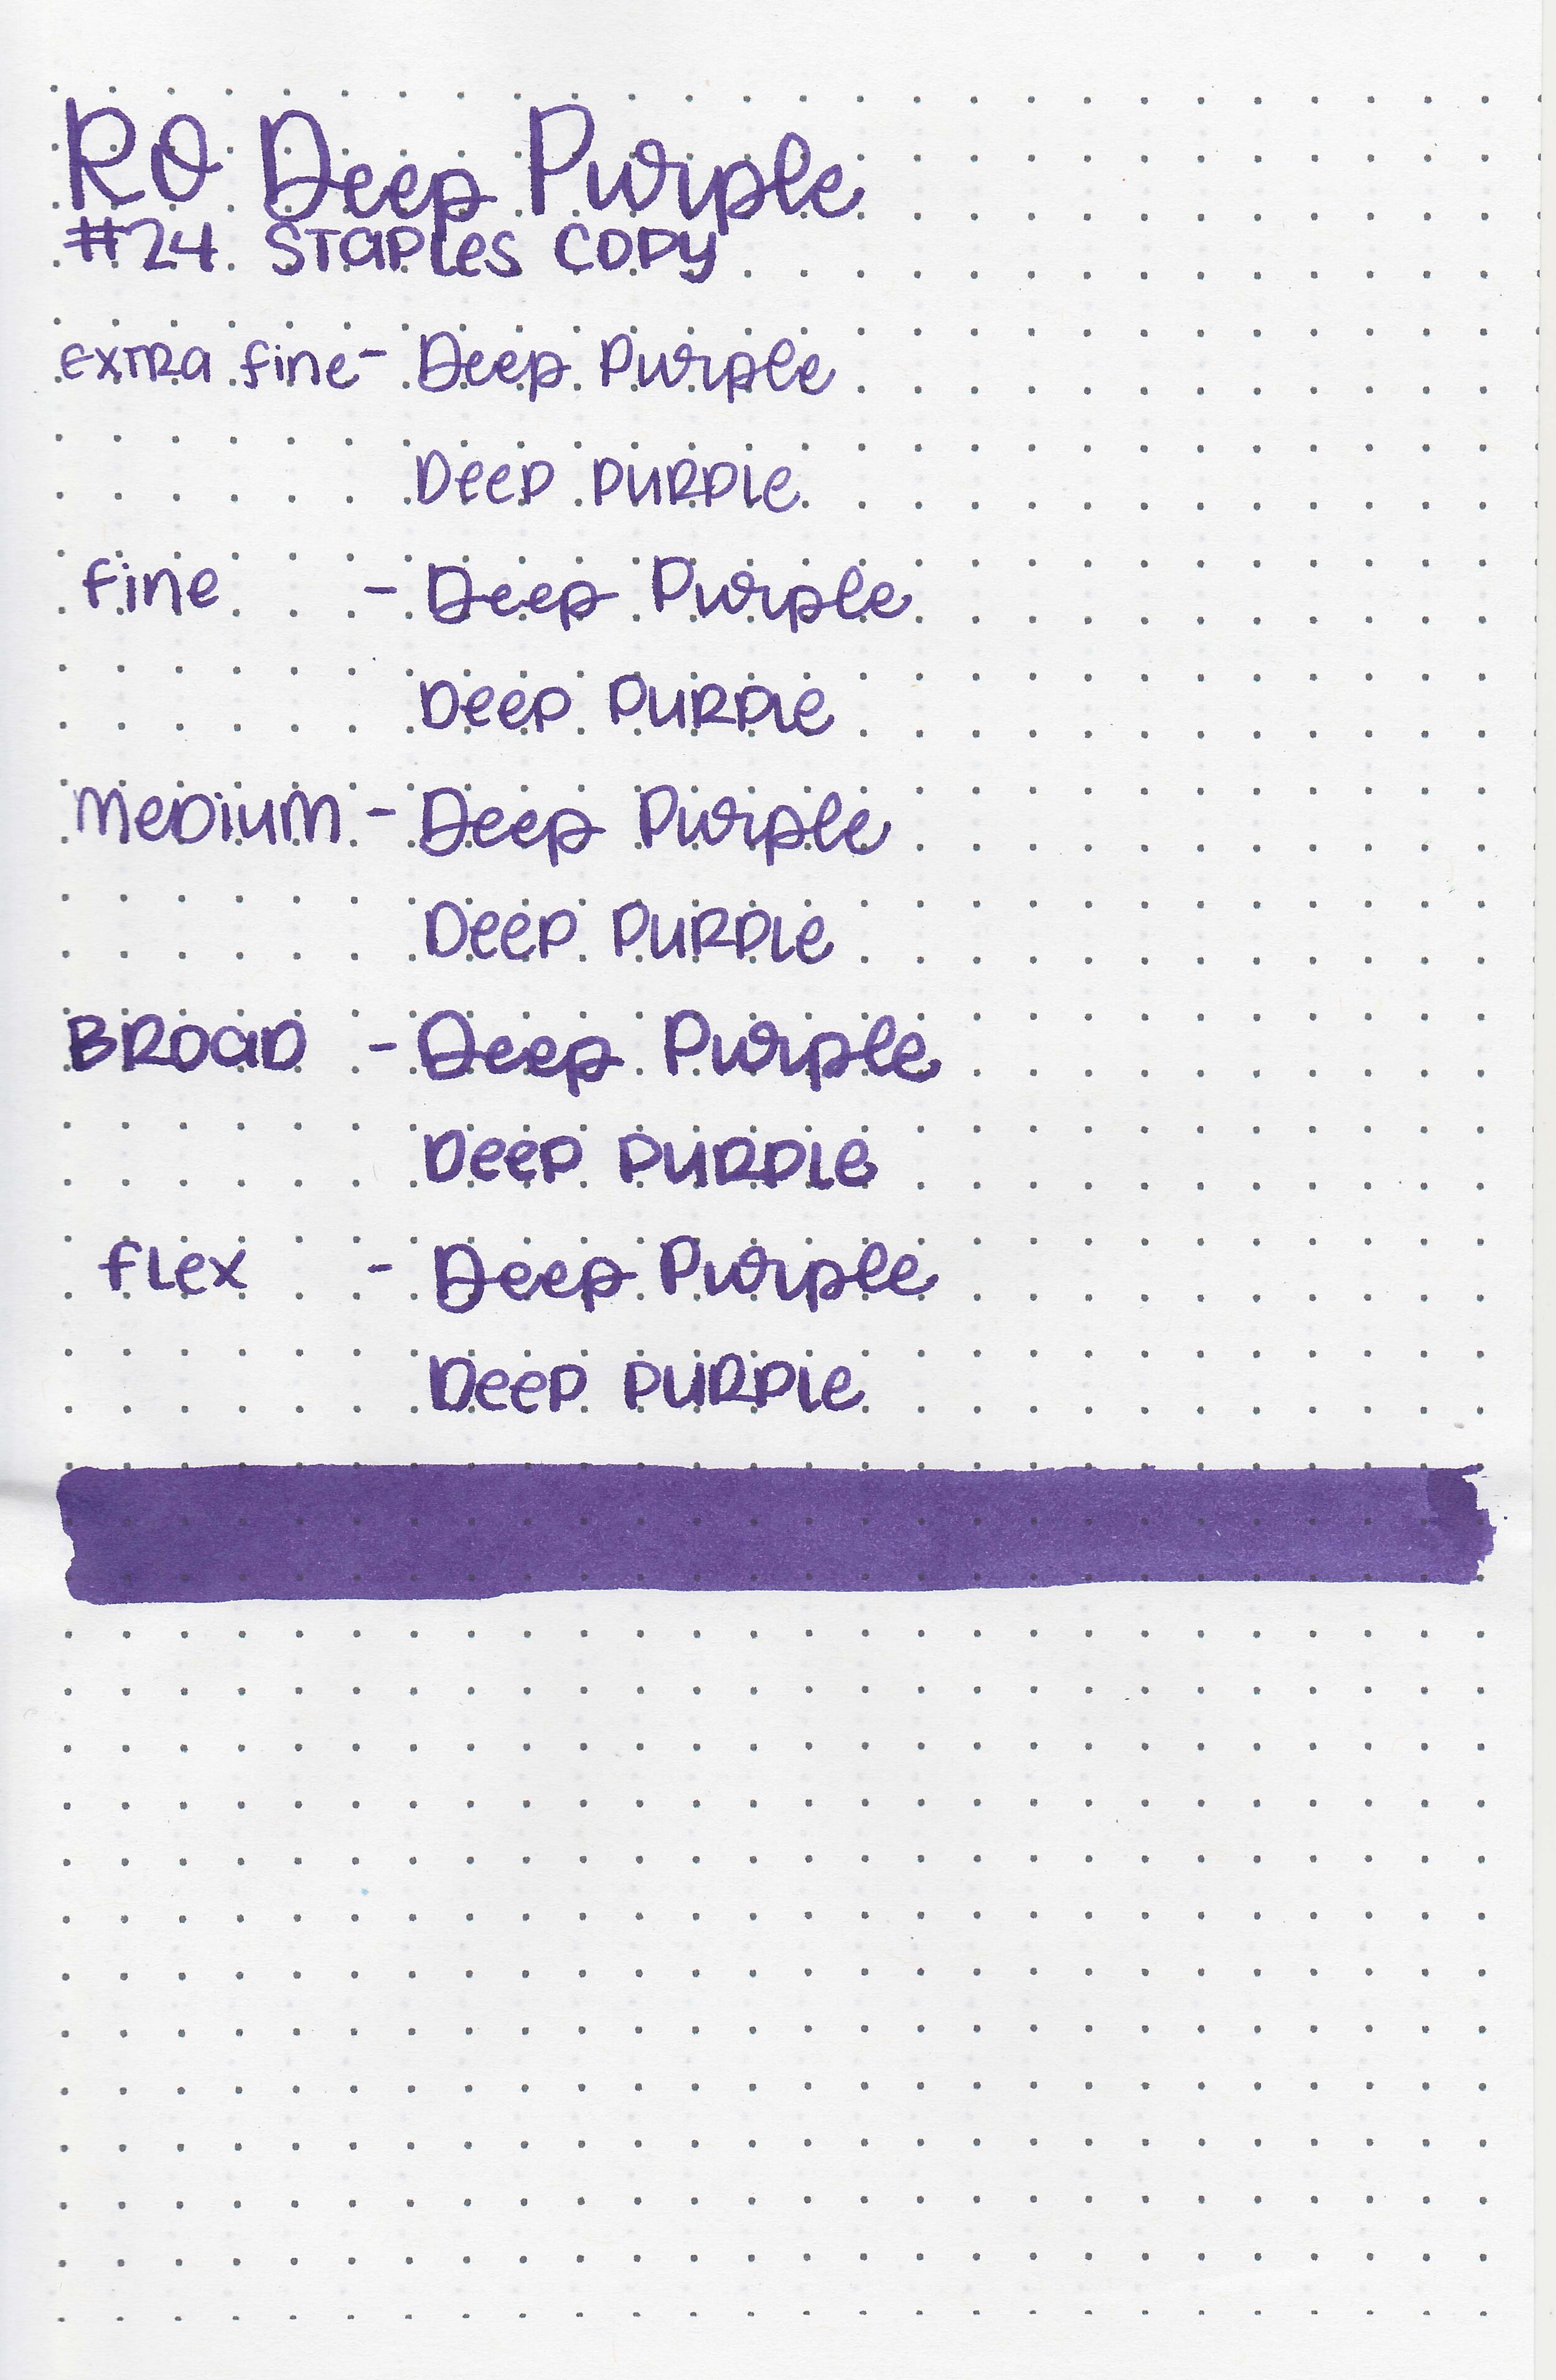 RO Deep Purple
#24 Staples Copy
Extra Fine - Deep Purple
Deep Purple
Fine - Deep Purple
Deep Purple
Medium - Deep Purple
Deep Purple
Broad - Deep Purple
Deep Purple
Flex - Deep Purple
Deep Purple